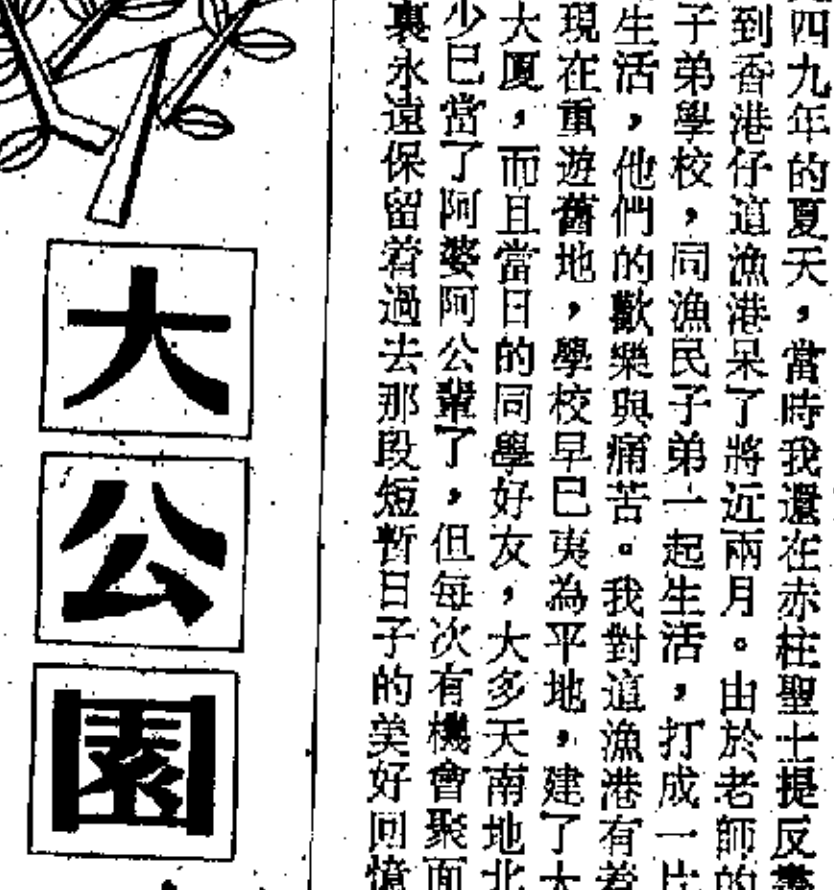 四九年的夏天，當時我還在赤柱聖士提反書
到香港仔這漁港呆了將近兩月。由於老師的
子弟學校，同漁民子弟一起生活，打成一片
生活，他們的歡樂與痛苦。我對這漁港有着
現在重遊舊地，學校早已夷為平地，建了大
大厦，而且當日的同學好友，大多天南地北
少已當了阿婆阿公輩了，但每次有機會聚面
裏永遠保留着過去那段短暫日子的美好回憶
大公園